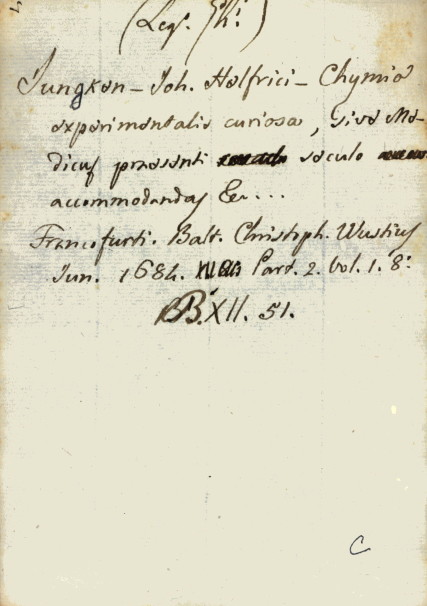 (Leg. Ph.)
Jungken - Joh. Helfrici - Chymia
experimentalis curiosa, sive Me-
dicus præsenti saeculo
accommodandus &c...
Francofurti. Balt. Christoph. Wustius
Jun. 1684. Part. 2. Vol. 1. 8.
B. XII. 51.
C